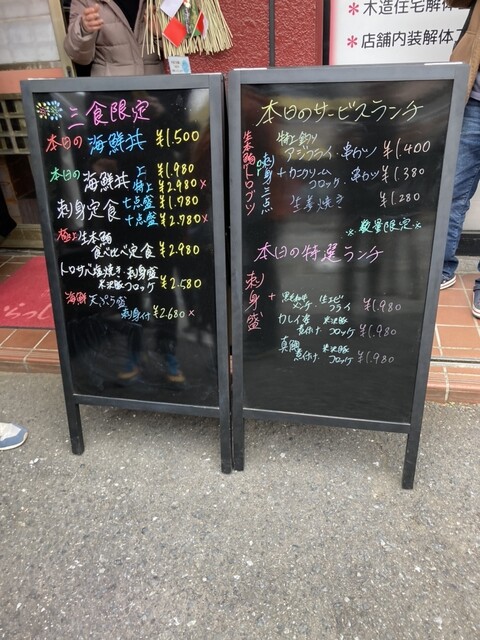 三食限定
本日の 海鮮丼 ¥1.500
本日の 海鮮丼 上 ¥1.980
特上 ¥2.980 ×
刺身定食 七点盛 ¥1.780
十点盛 ¥2.780 ×
極上生本鮪
食べ比べ定食 ¥2.980
トロサバ塩焼き 刺身盛
米沢豚コロッケ ¥2.580
海鮮 天ぷら盛
刺身付 ¥2.680 ×
本日のサービスランチ
生本鮪トロブツ
刺身三点
+
特上
アジフライ・串カツ ¥1.400
カニクリーム
コロッケ・串カツ ¥1.380
生姜焼き ¥1.280
※数量限定※
本日の特選ランチ
刺身盛
+
黒毛和牛 生エビ
メンチ フライ ¥1.980
カレイ 米沢豚
煮付け コロッケ ¥1.980
真鯛 米沢豚
煮付け コロッケ ¥1.980
＊木造住宅解体
＊店舗内装解体
らっし